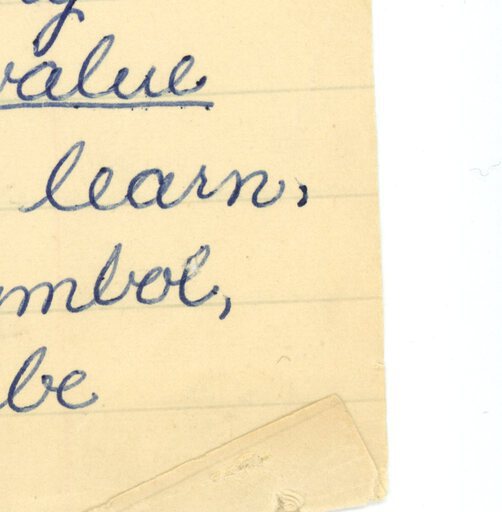 value
learn,
mbol,
be